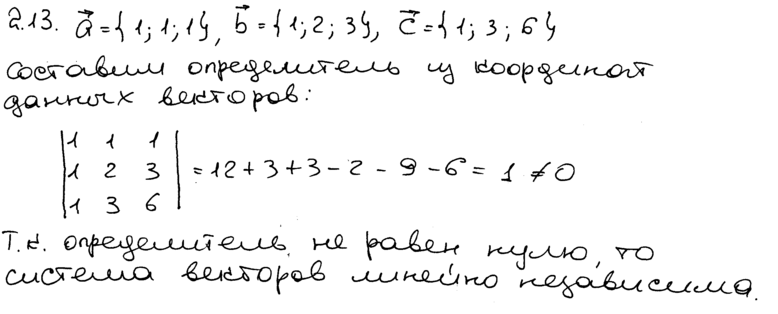 2.13. a⃗ = { 1; 1; 1}, b⃗ = { 1; 2; 3}, c⃗ = { 1; 3; 6}
Составим определитель из координат
данных векторов:
|1 1 1|
|1 2 3| = 12 + 3 + 3 - 2 - 9 - 6 = 1 ≠ 0
|1 3 6|
Т.к. определитель не равен нулю, то
система векторов линейно независима.